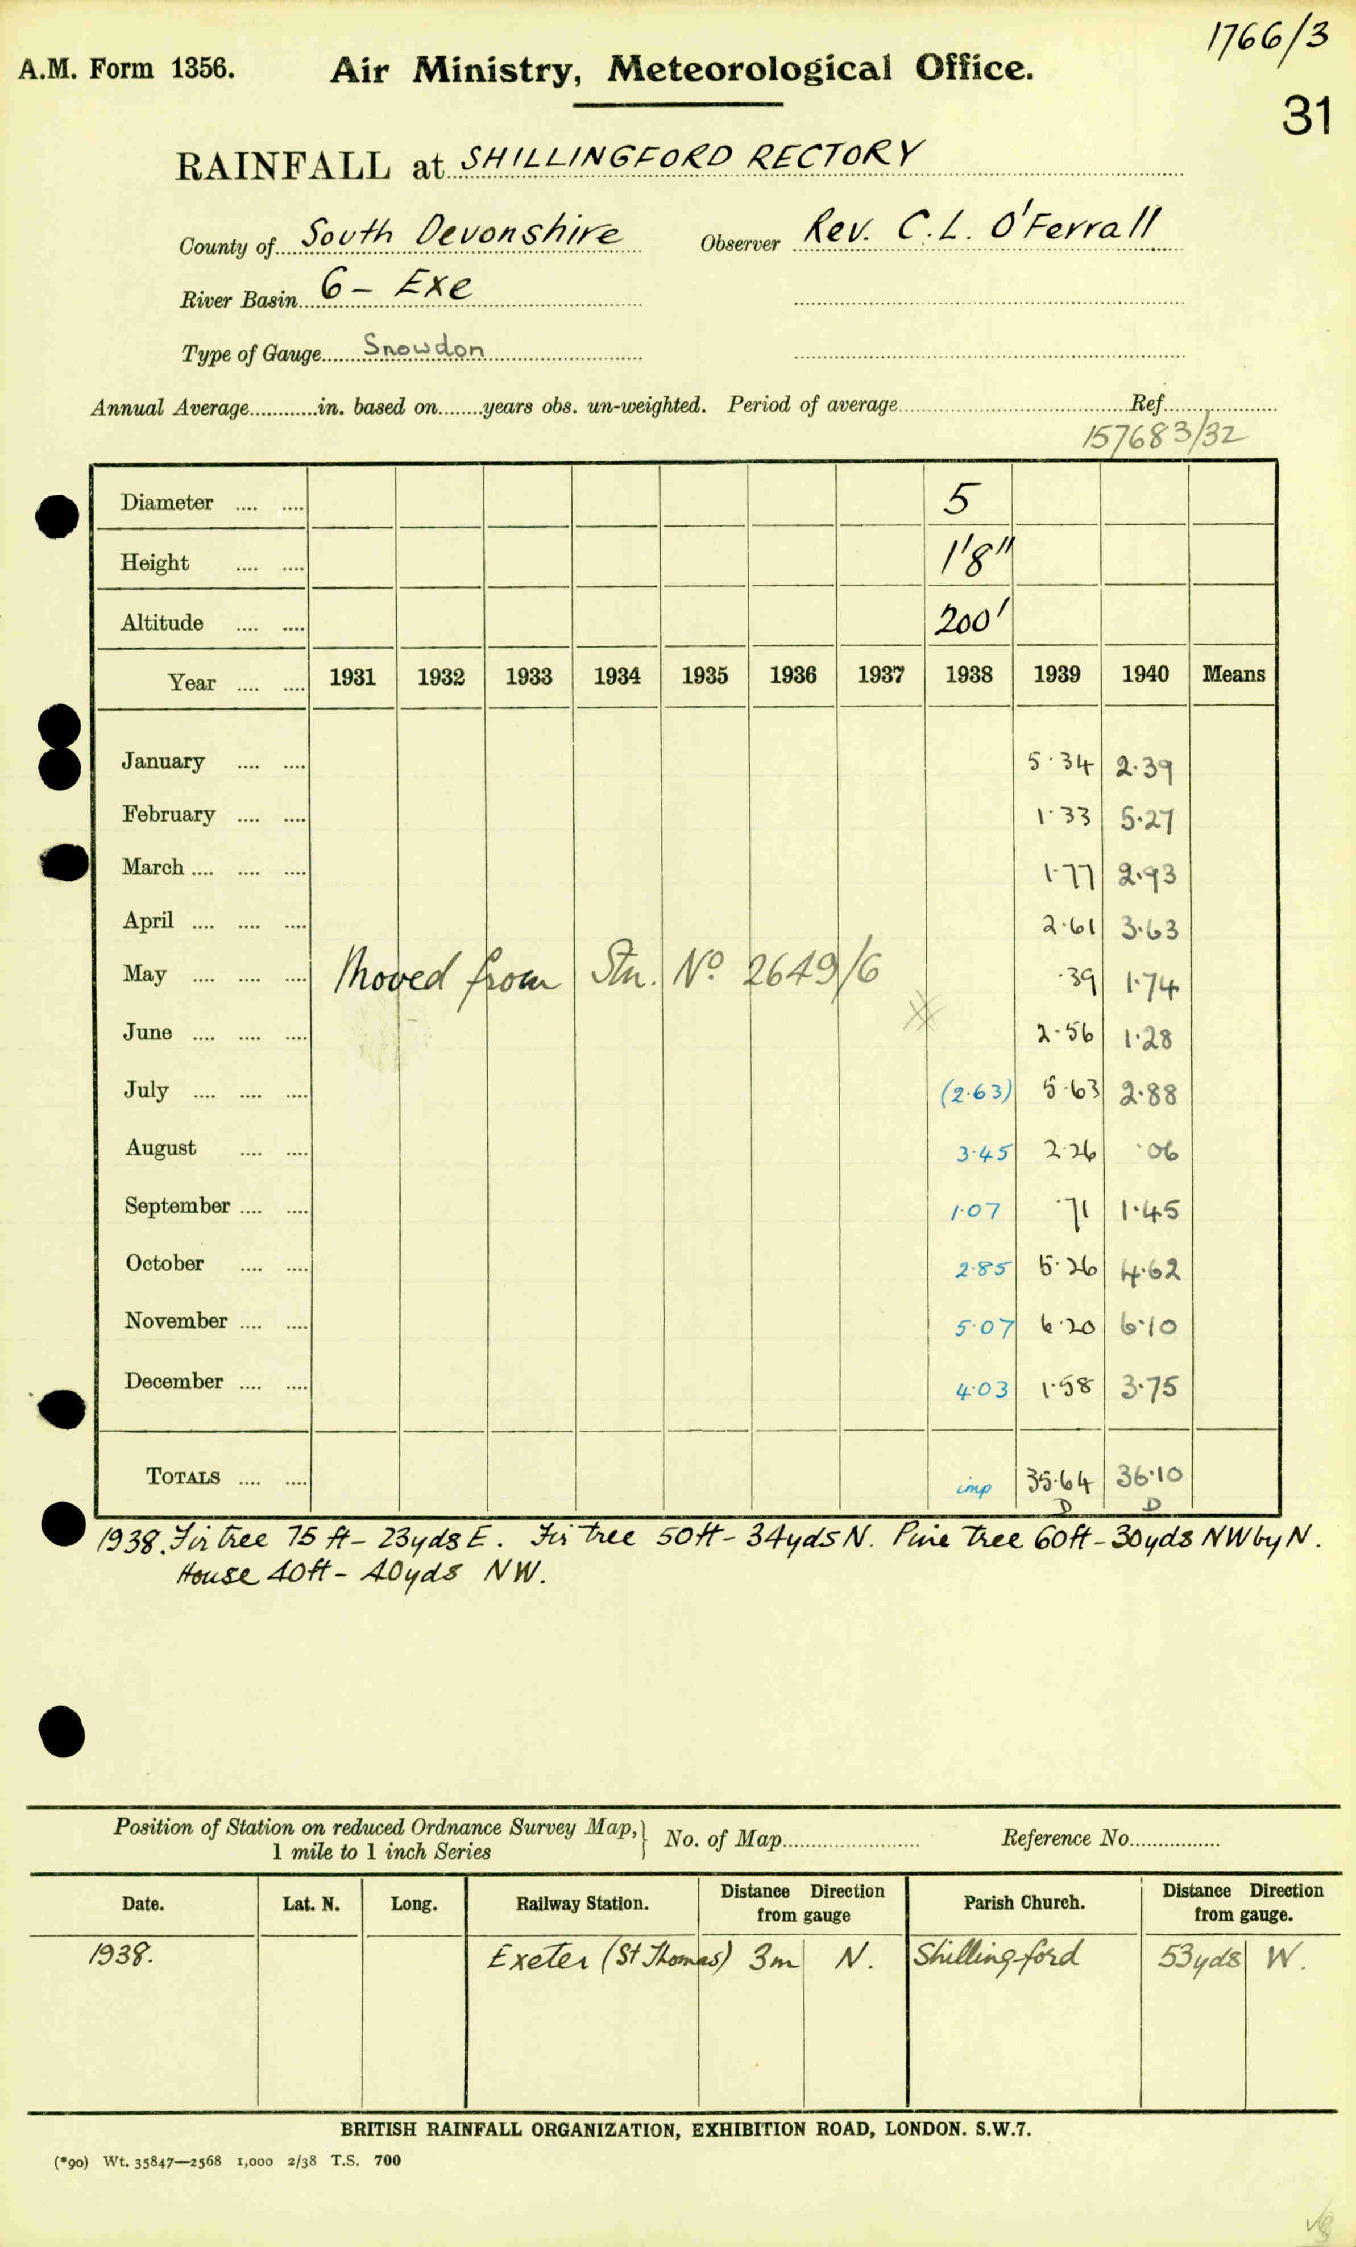 1766/3
A.M. Form 1356. Air Ministry, Meteorological Office.
31
RAINFALL at SHILLINGFORD RECTORY
County of South Devonshire Observer Rev. C.L. O'Ferrall
River Basin 6 - Exe
Type of Gauge Snowdon
Annual Average............in. based on........years obs. un-weighted. Period of average........ Ref........
157683/32
Diameter .... .... 5
Height .... .... 1'8"
Altitude .... .... 200'
Year .... .... 1931 1932 1933 1934 1935 1936 1937 1938 1939 1940 Means
January .... .... 5.34 2.39
February .... .... 1.33 5.27
March .... .... .... 1.77 2.93
April .... .... .... 2.61 3.63
May .... .... .... Moved from Stn. No 2649/6 .39 1.74
June .... .... .... 2.56 1.28
July .... .... .... (2.63) 5.63 2.88
August .... .... 3.45 2.26 .06
September .... .... 1.07 .71 1.45
October .... .... 2.85 5.26 4.62
November .... .... 5.07 6.20 6.10
December .... .... 4.03 1.58 3.75
TOTALS .... .... imp 35.64 36.10
D D
1938. Fir tree 75 ft - 23yds E. Fir tree 50ft - 34yds N. Pine Tree 60ft - 30yds NW by N.
House 40ft - 40yds NW.
Position of Station on reduced Ordnance Survey Map, } No. of Map........ Reference No........
1 mile to 1 inch Series
Date. Lat. N. Long. Railway Station. Distance Direction from gauge Parish Church. Distance Direction from gauge.
1938. Exeter (St Thomas) 3m N. Shillingford 53yds W.
BRITISH RAINFALL ORGANIZATION, EXHIBITION ROAD, LONDON. S.W.7.
(*90) Wt. 35847—2568 1,000 2/38 T.S. 700